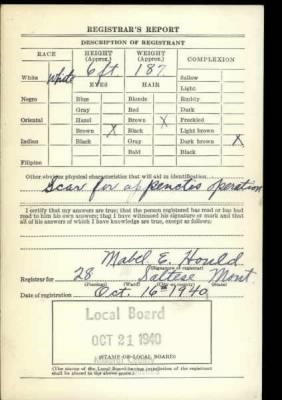 REGISTRAR'S REPORT
DESCRIPTION OF REGISTRANT
RACE HEIGHT (Approx.) WEIGHT (Approx.) COMPLEXION
White White 6 ft. 187 Sallow
EYES HAIR Light
Negro Blue Blonde Ruddy
Gray Red Dark
Oriental Hazel Brown X Freckled
Brown X Black Light brown
Indian Black Gray Dark brown X
Bald Black
Filipino
Other obvious physical characteristics that will aid in identification
Scar for appenctis operation
I certify that my answers are true; that the person registered has read or has had
read to him his own answers; that I have witnessed his signature or mark and that
all of his answers of which I have knowledge are true, except as follows:
Mabel E. Hould
(Signature of registrar)
Registrar for 28 Saltese Mont
(Precinct) (Ward) (City or county) (State)
Date of registration Oct. 16th 1940
Local Board
OCT 21 1940
(STAMP OF LOCAL BOARD)
(The stamp of the Local Board having jurisdiction of the registrant
shall be placed in the above space.)